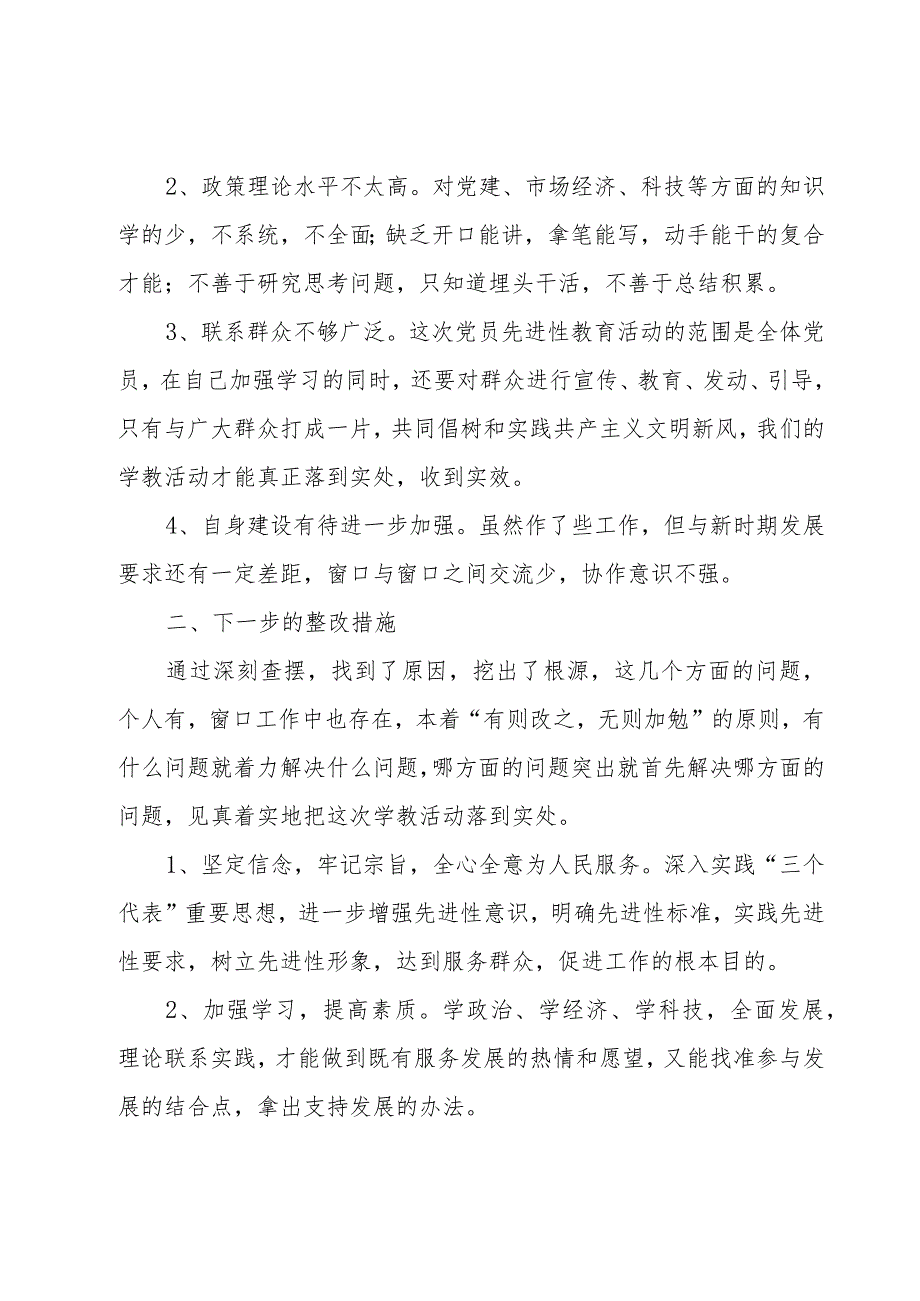 2、政策理论水平不太高。对党建、市场经济、科技等方面的知识
学的少，不系统，不全面；缺乏开口能讲，拿笔能写，动手能干的复合
才能；不善于研究思考问题，只知道埋头干活，不善于总结积累。
3、联系群众不够广泛。这次党员先进性教育活动的范围是全体党
员，在自己加强学习的同时，还要对群众进行宣传、教育、发动、引导，
只有与广大群众打成一片，共同倡树和实践共产主义文明新风，我们的
学教活动才能真正落到实处，收到实效。
4、自身建设有待进一步加强。虽然作了些工作，但与新时期发展
要求还有一定差距，窗口与窗口之间交流少，协作意识不强。
二、下一步的整改措施
通过深刻查摆，找到了原因，挖出了根源，这几个方面的问题，
个人有，窗口工作中也存在，本着“有则改之，无则加勉”的原则，有
什么问题就着力解决什么问题，哪方面的问题突出就首先解决哪方面的
问题，见真着实地把这次学教活动落到实处。
1、坚定信念，牢记宗旨，全心全意为人民服务。深入实践“三个
代表”重要思想，进一步增强先进性意识，明确先进性标准，实践先进
性要求，树立先进性形象，达到服务群众，促进工作的根本目的。
2、加强学习，提高素质。学政治、学经济、学科技，全面发展，
理论联系实践，才能做到既有服务发展的热情和愿望，又能找准参与发
展的结合点，拿出支持发展的办法。